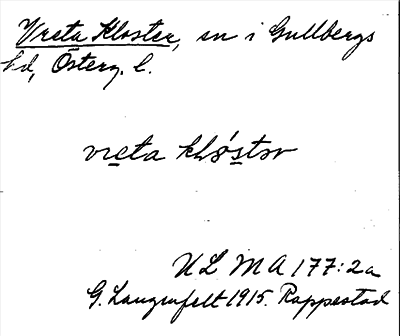 Vreta Kloster, sn i Gullbergs
hd, Österg. l.
vreta klóstər
ULMA 177:2a
G. Langenfelt 1915. Rappestad